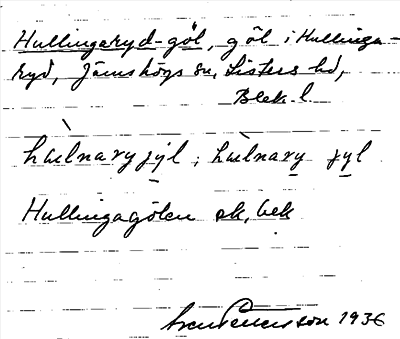 Hullingaryd-göl, göl i Hullinga-
ryd, Jämshögs sn, Listers hd,
Blek. l.
hùlnaryjýl; hùlnary jyl
Hullingagölen ek, bek
Svenson 1936